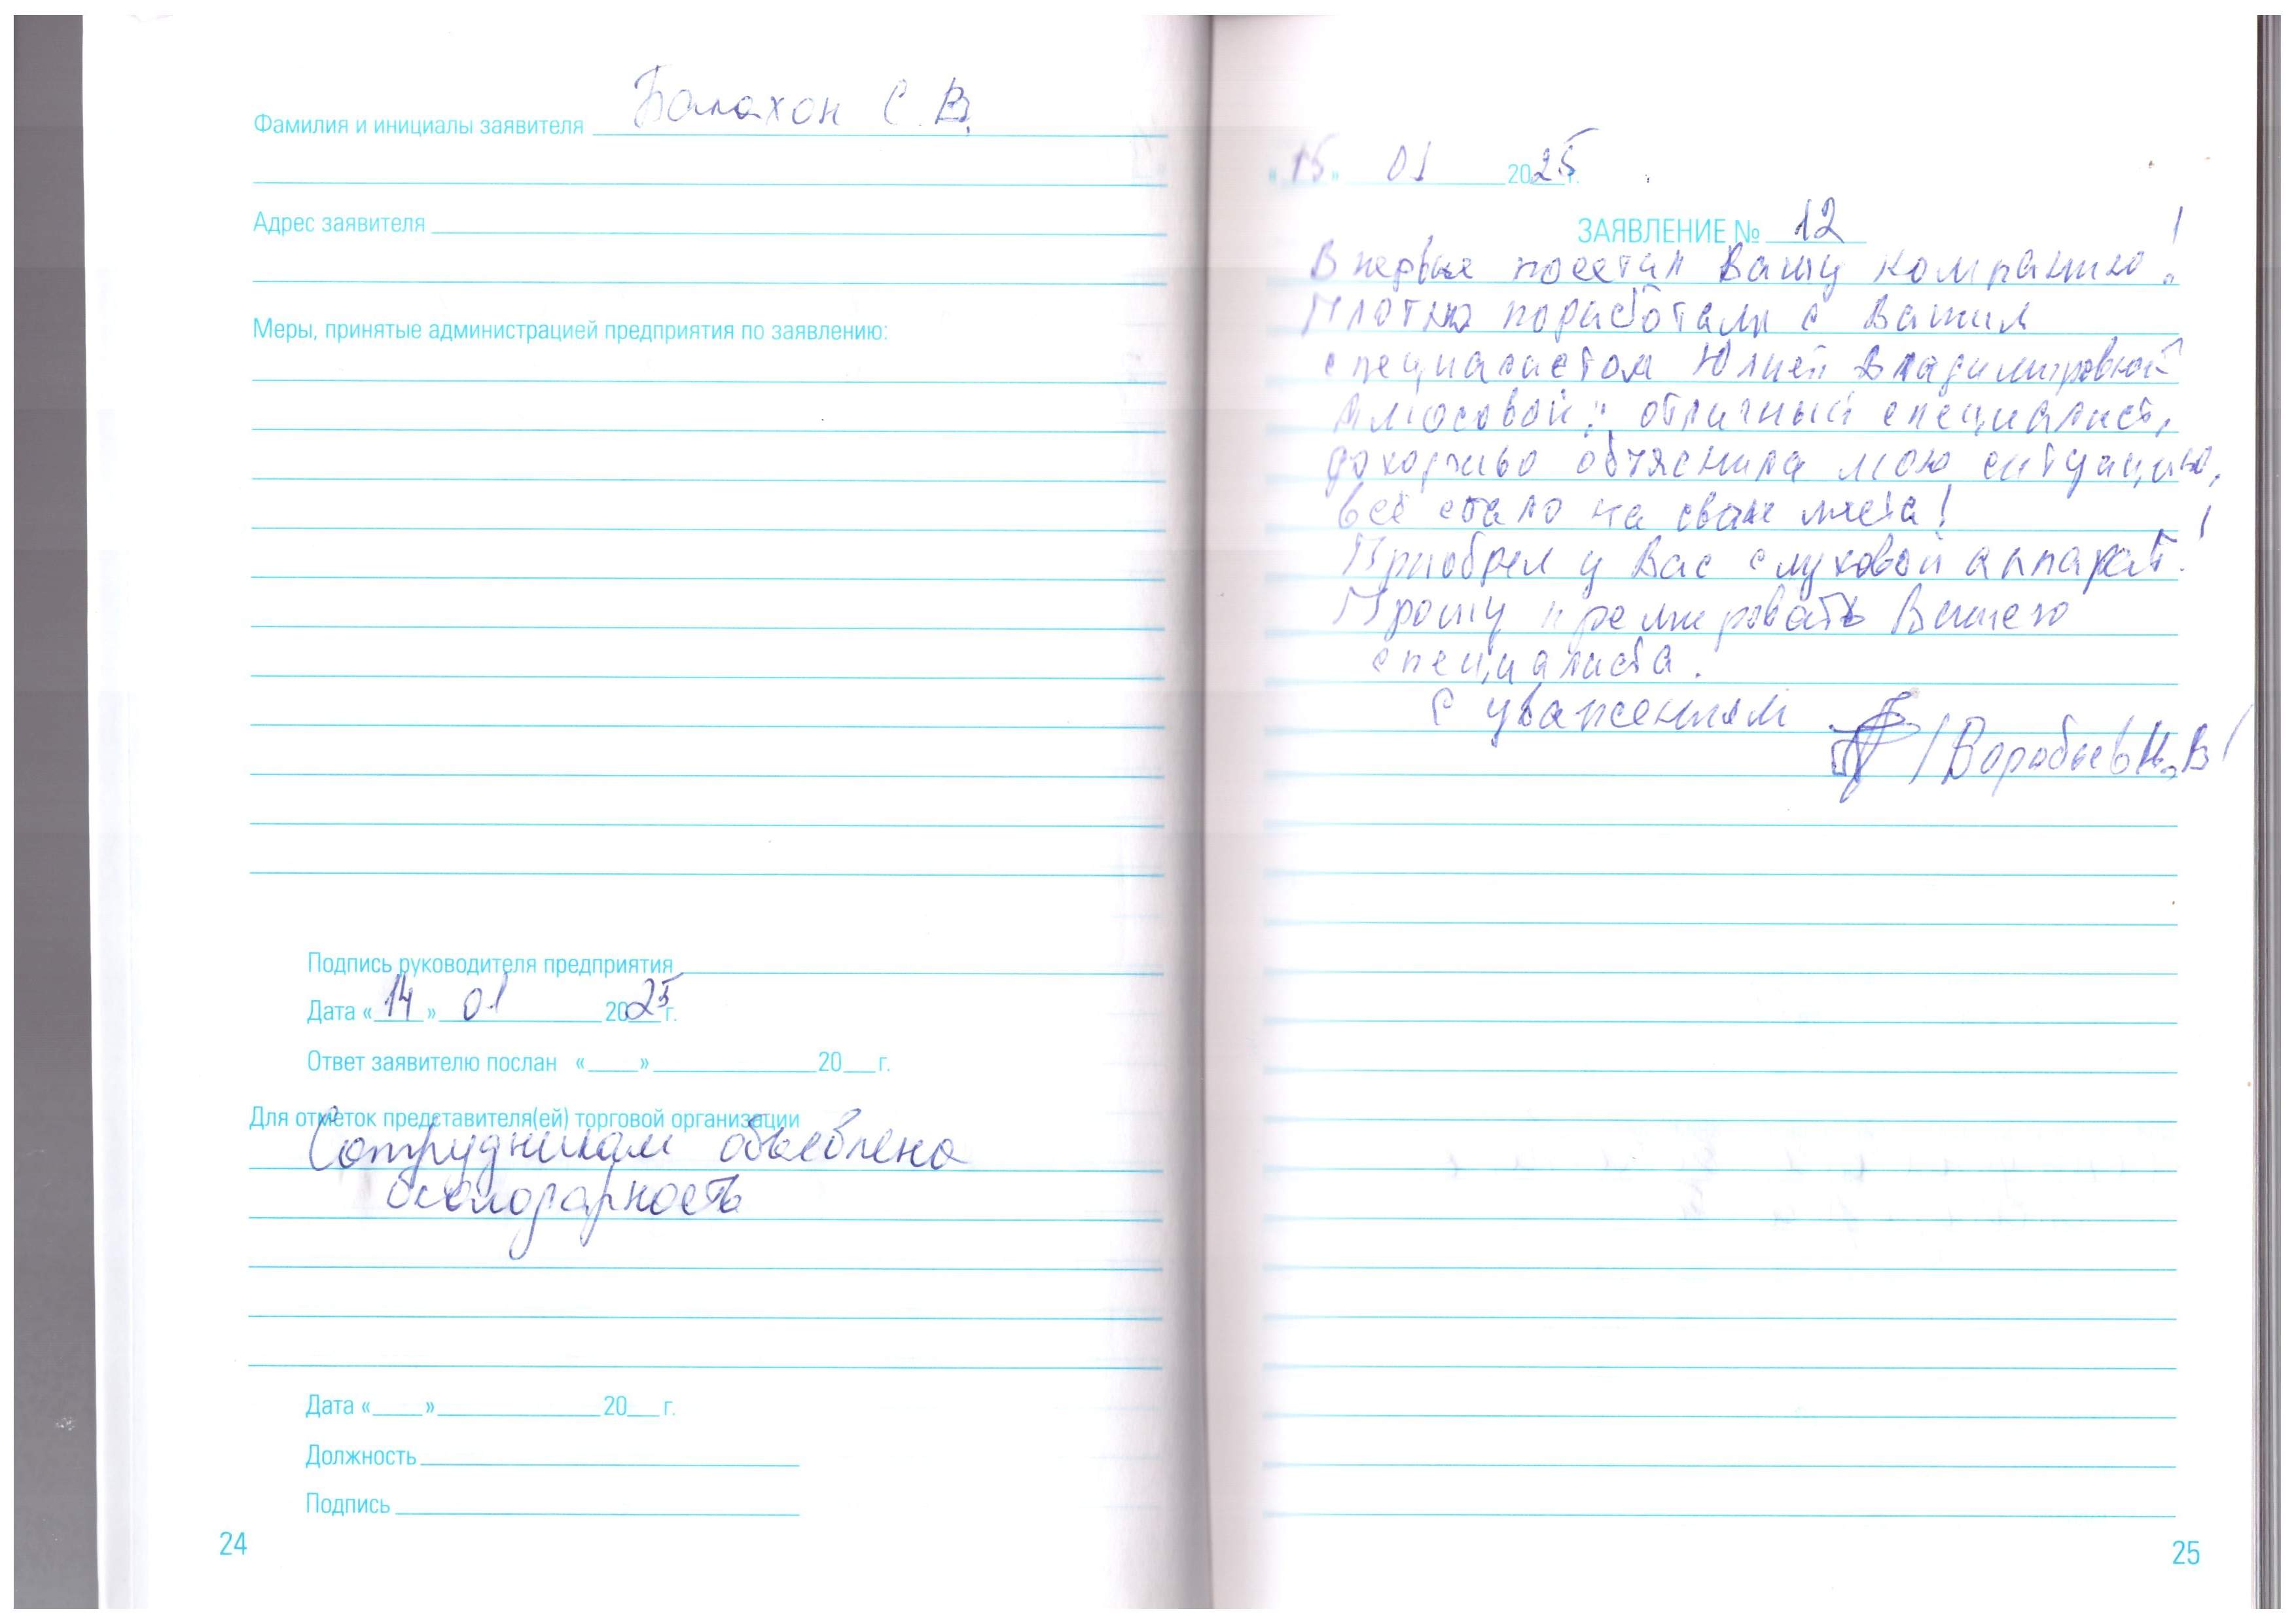 Фамилия и инициалы заявителя Балахон С.В.
Адрес заявителя
Меры, принятые администрацией предприятия по заявлению:
Подпись руководителя предприятия
Дата «14» 01 2025 г.
Ответ заявителю послан «___» 20__ г.
Для отметок представителя(ей) торговой организации
Сотрудникам объевлена
благодарность
Дата «___» 20__ г.
Должность
Подпись
24
«15» 01 2025 г.
ЗАЯВЛЕНИЕ № 12
Впервые посетил Вашу компанию!
Плотно поработали с Вашим
специалистом Юлией Владимировной
: отличный специалист,
доходчиво объяснила мою ситуацию,
всё стало на свои места!
Приобрел у Вас слуховой аппарат!
Прошу премировать Вашего
специалиста.
С уважением
/Воробьев Н.В/
25